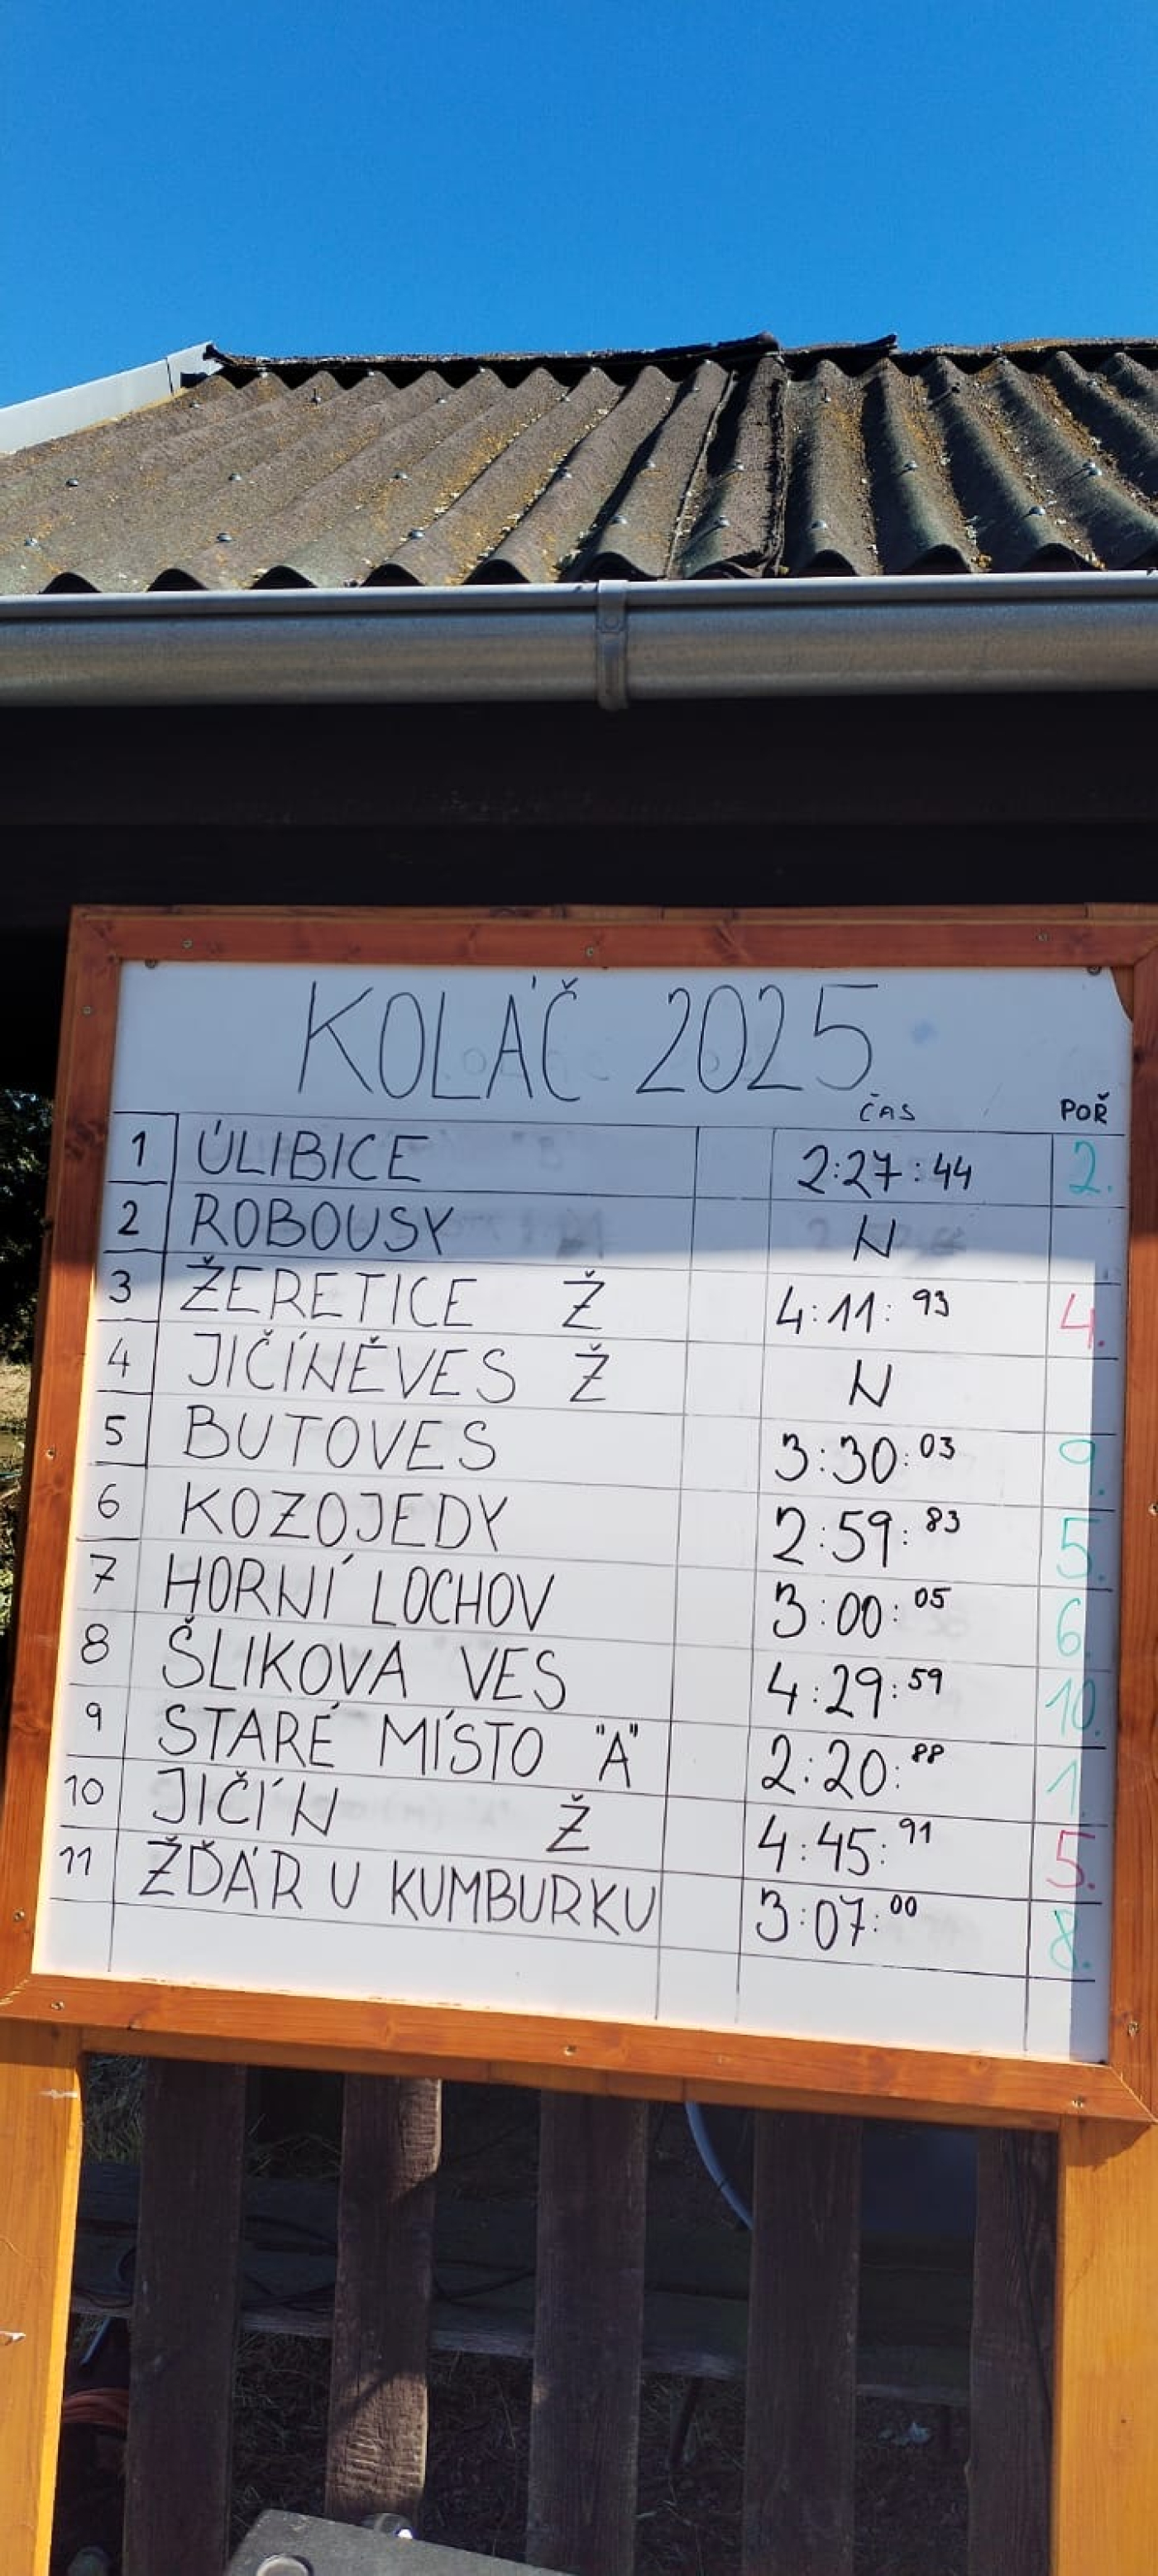 KOLÁČ 2025
ČAS POŘ
1 ÚLIBICE 2:27:44 2.
2 ROBOUSY N
3 ŽERETICE Ž 4:11:93 4.
4 JIČÍNĚVES Ž N
5 BUTOVES 3:30:03 9.
6 KOZOJEDY 2:59:83 5.
7 HORNÍ LOCHOV 3:00:05 6.
8 ŠLIKOVA VES 4:29:59 10.
9 STARÉ MÍSTO "A" 2:20:88 1.
10 JIČÍN Ž 4:45:91 5.
11 ŽĎÁR U KUMBURKU 3:07:00 8.